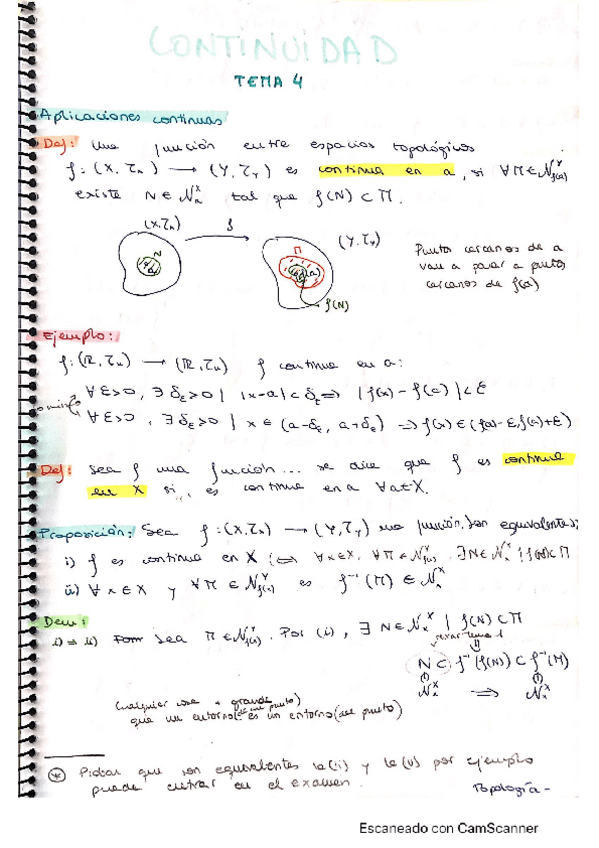 CONTINUIDAD
TEMA 4
Aplicaciones continuas
Def: Una función entre espacios topológicos
f: (X, τₓ) → (Y, τᵧ) es continua en a, si ∀M∈N^Y_f(a)
existe N ∈ N^X_a tal que f(N) ⊂ M.
(X, τₓ) f (Y, τᵧ)
N M
f(N)
Puntos cercanos de a
van a parar a puntos
cercanos de f(a)
Ejemplo:
f: (ℝ, τᵤ) → (ℝ, τᵤ) f continua en a:
∀ε>0, ∃ δ_ε>0 | |x-a| < δ_ε ⇒ |f(x) - f(a)| < ε
lo mismo
∀ε>0, ∃ δ_ε>0 | x ∈ (a-δ_ε, a+δ_ε) ⇒ f(x) ∈ (f(a)-ε, f(a)+ε)
Def: Sea f una función... se dice que f es continua
en X si es continua en a ∀a∈X.
Proposición: Sea f: (X, τₓ) → (Y, τᵧ) una función, son equivalentes:
i) f es continua en X ⇔ ∀x∈X, ∀M∈N^Y_f(x), ∃N∈N^X_x | f(N)⊂M
ii) ∀x∈X y ∀M ∈ N^Y_f(x) es f⁻¹(M) ∈ N^X_x
Dem:
i) ⇒ ii) Sea M∈N^Y_f(x). Por (i), ∃ N∈N^X_x | f(N)⊂M
tema 1
⇓
N ⊂ f⁻¹(f(N)) ⊂ f⁻¹(M)
N^X_x ⇒ N^X_x
Cualquier cosa + grande
que un entorno (de un punto) es un entorno (del punto)
* Probar que son equivalentes la (i) y la (ii) por ejemplo
puede entrar en el examen.
Topología -
Escaneado con CamScanner